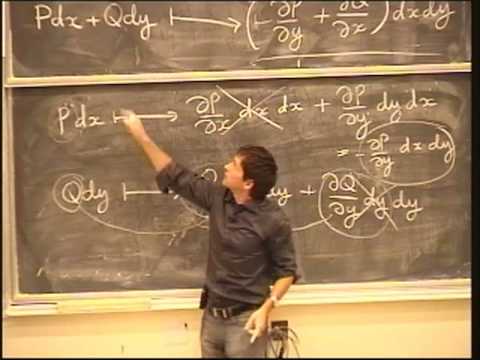 Pdx + Qdy ⟼ (-∂P/∂y + ∂Q/∂x) dxdy
Pdx ⟼ ∂P/∂x dx dx + ∂P/∂y dy dx
= -∂P/∂y dx dy
Qdy ⟼ dy + ∂Q/∂y dy dy